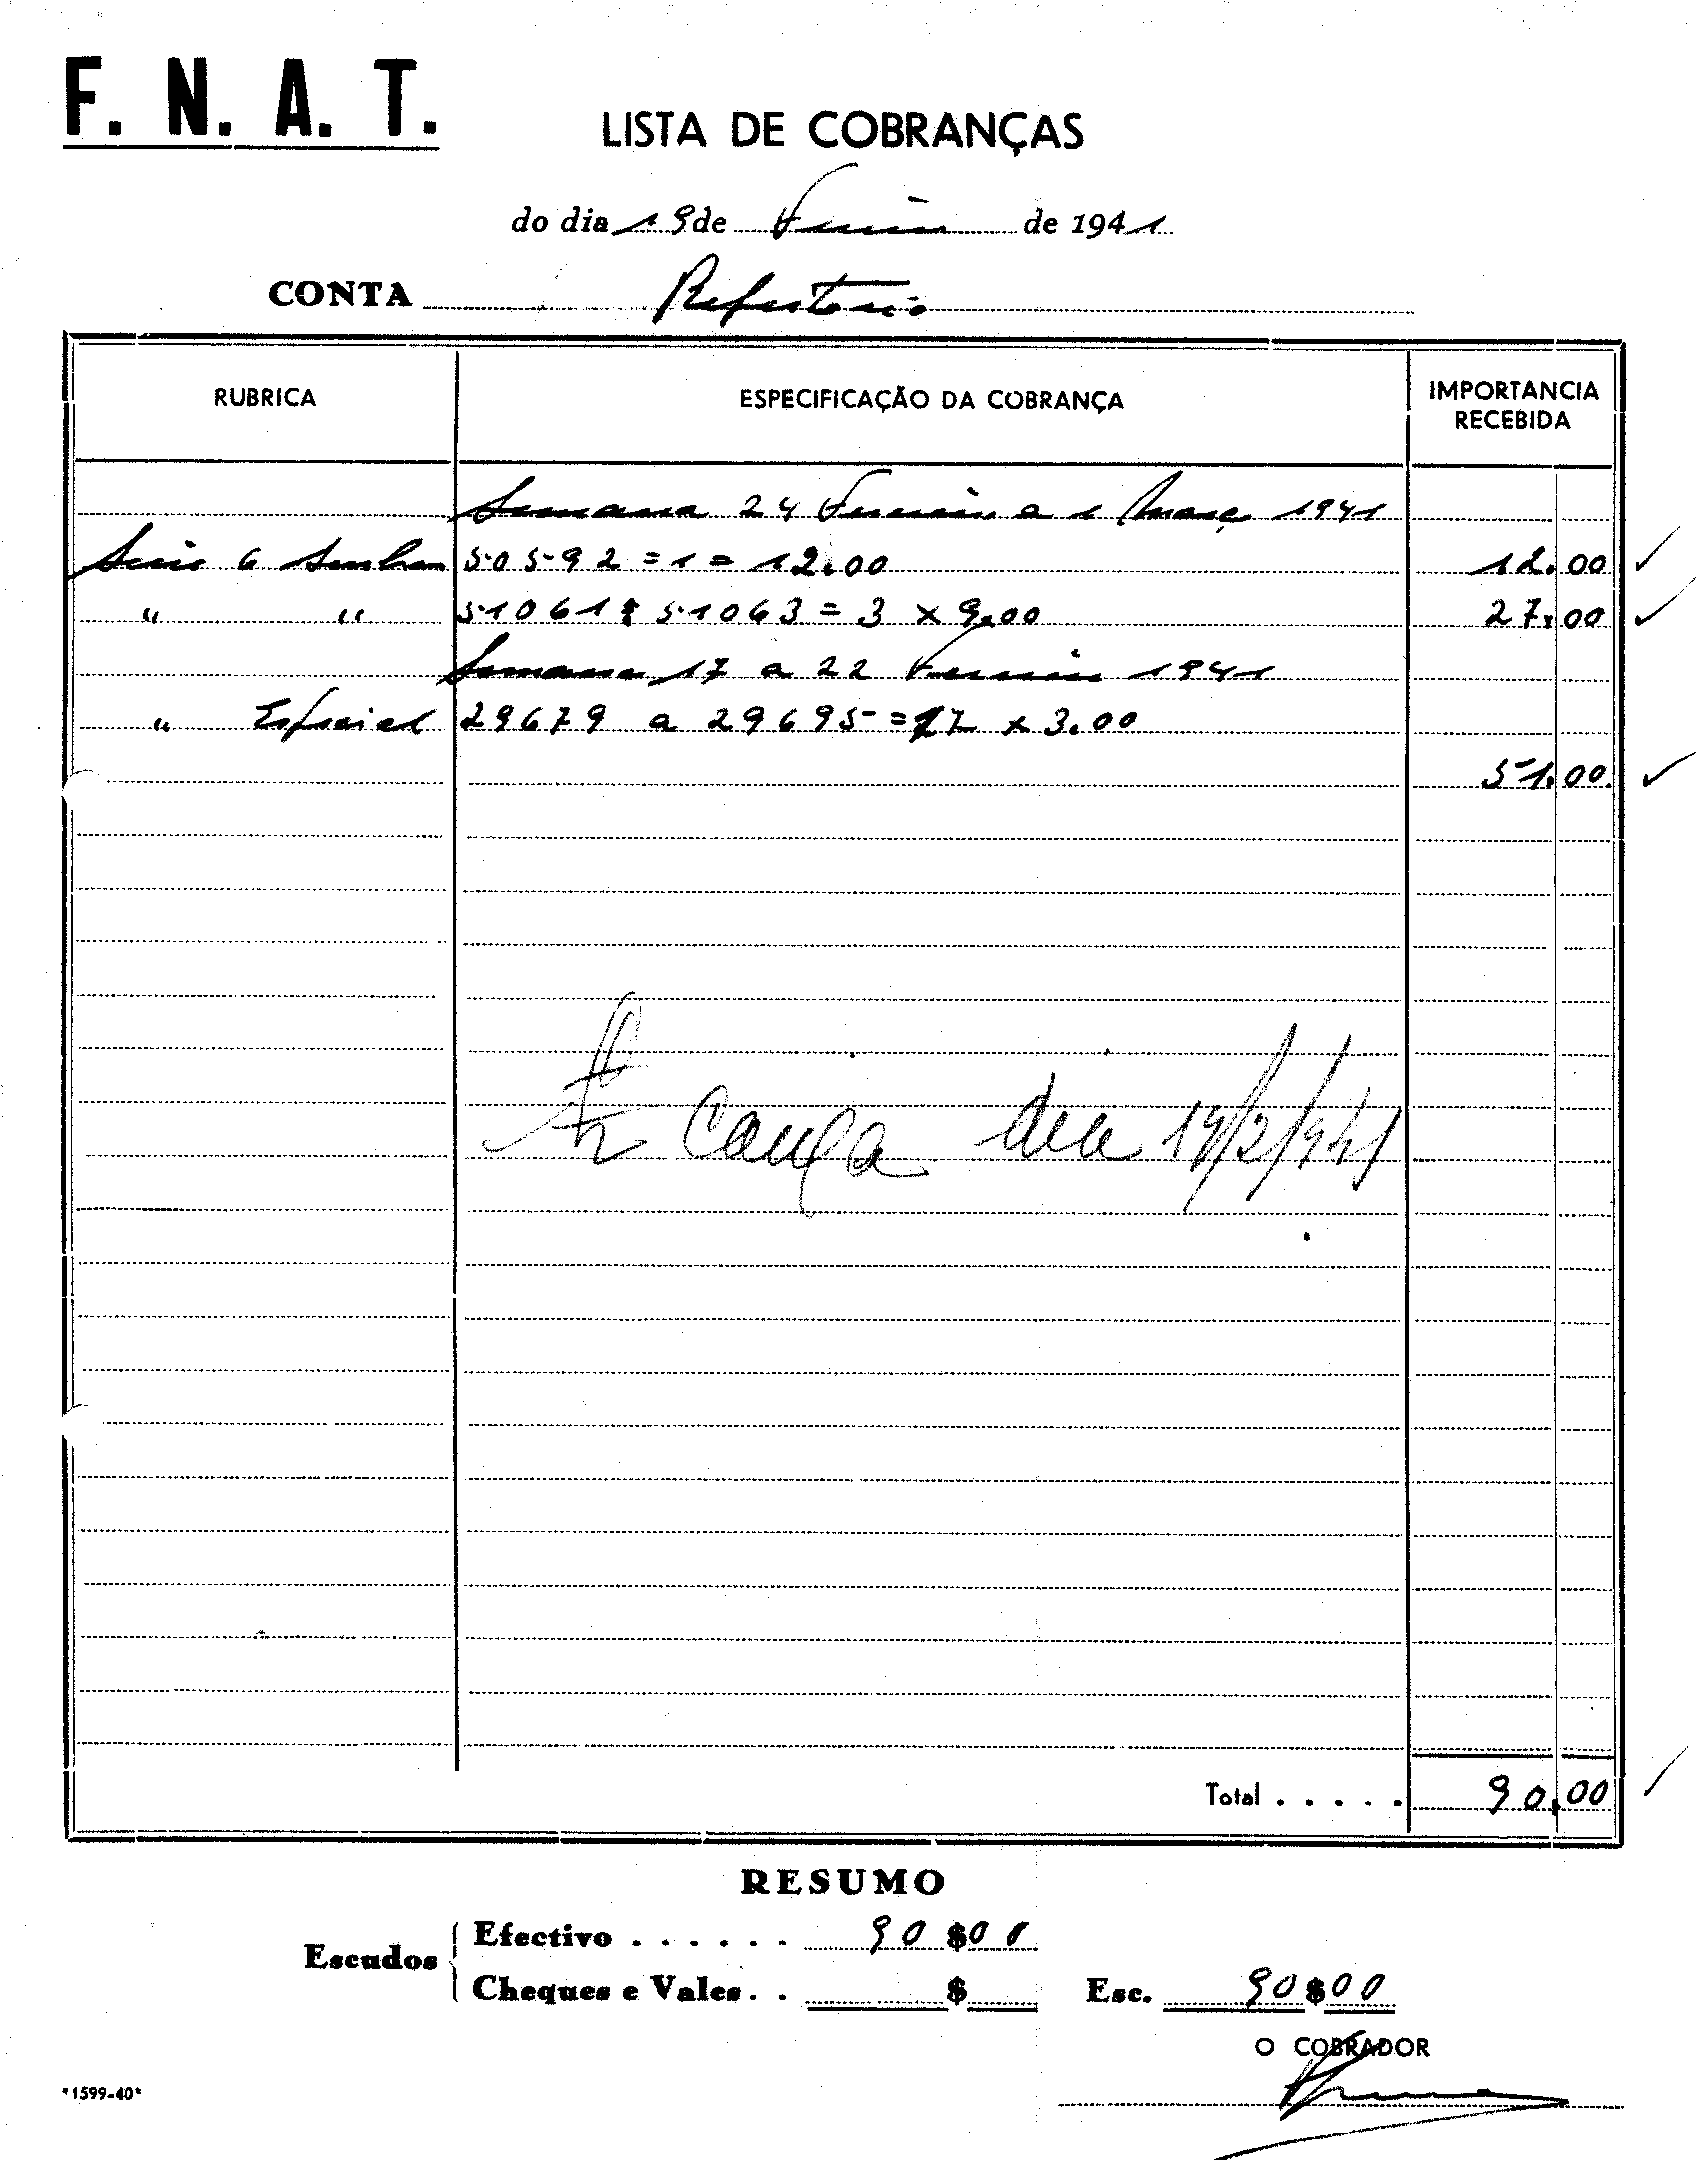 F. N. A. T.
LISTA DE COBRANÇAS
do dia 19 de Fevereiro de 1941
CONTA Refeitorio
RUBRICA ESPECIFICAÇÃO DA COBRANÇA IMPORTANCIA RECEBIDA
Semana 24 Fevereiro a 1 Março 1941
Serie 6 Senhas 50592 = 1 = 12.00 12.00
" " 51061 a 51063 = 3 x 9.00 27.00
Semana 17 a 22 Fevereiro 1941
" Especial 29679 a 29695 = 17 x 3.00
51.00
Caixa dia 19/2/941
Total . . . . . 90.00
RESUMO
Escudos
Efectivo . . . . . . 90$00
Cheques e Vales . . $
Esc. 90$00
O COBRADOR
*1599-40*